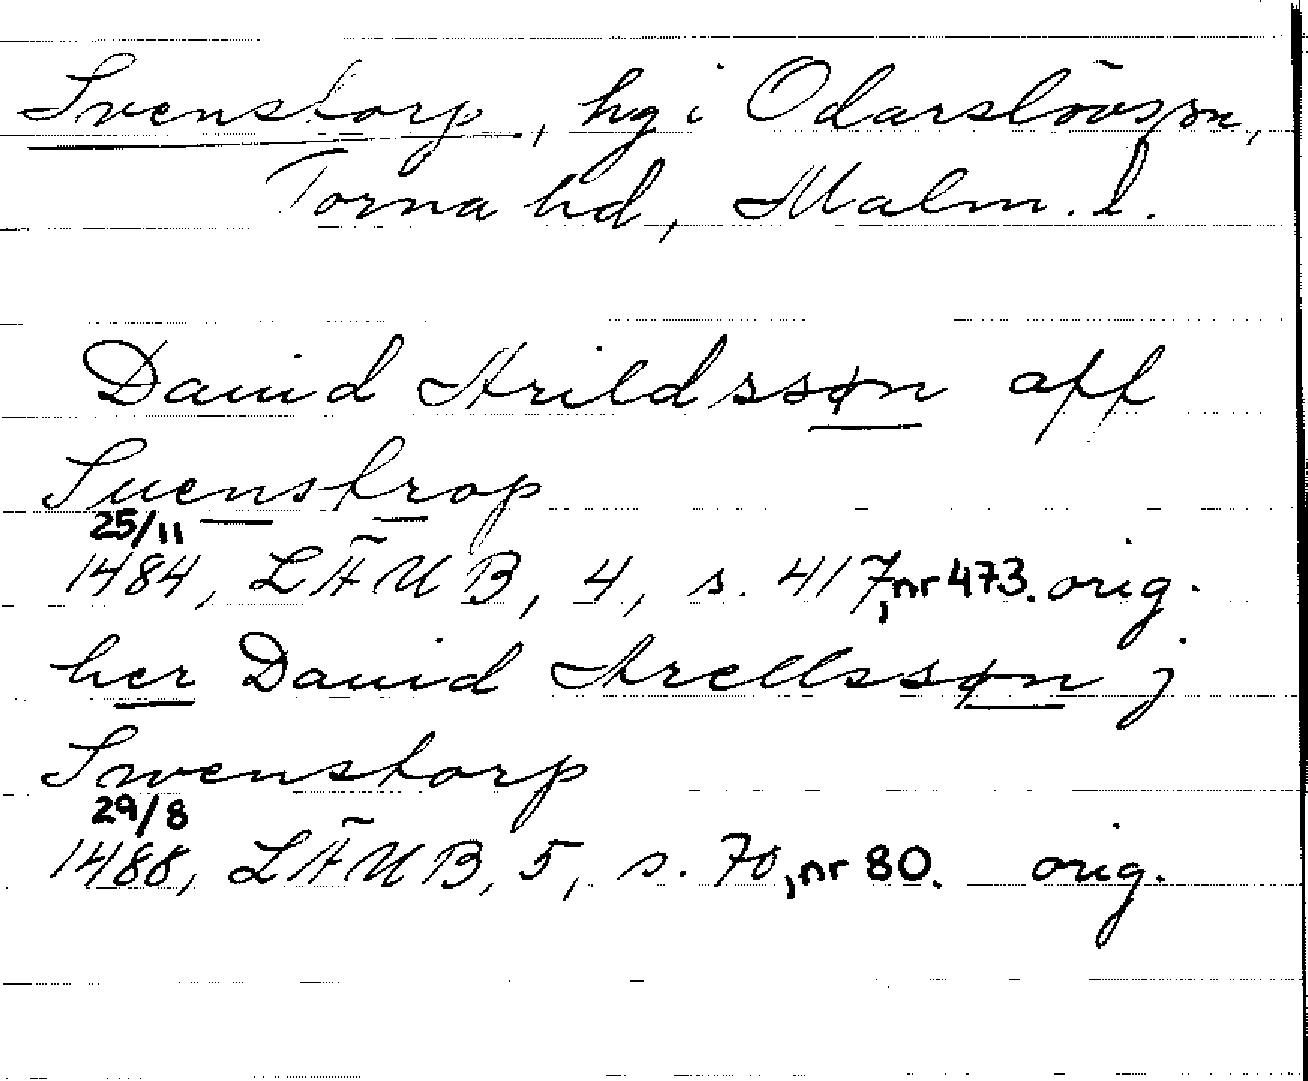 Svenstorp, hg i Odarslövs sn,
Torna hd, Malm. l.
Dauid Arildssøn aff
Suenstrop
25/11
1484, LÄUB, 4, s. 417, nr 473. orig.
her Dauid Arellssøn j
Swenstorp
29/8
1488, LÄUB, 5, s. 70, nr 80. orig.